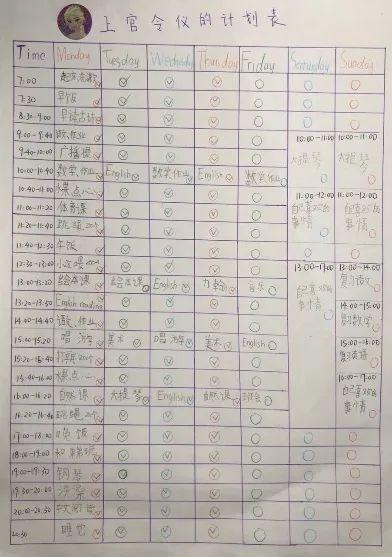 上官令仪的计划表
Time Monday Tuesday Wednesday Thursday Friday Saturday Sunday
7:00 起床
7:30 早饭
8:30-9:00 早读古诗
9:00-9:40 做作业 10:00-11:00 10:00-11:00
9:40-10:00 广播操 大提琴 大提琴
10:00-10:40 数学作业 English 数学作业 English 数学作业
10:40-11:00 课点心 11:00-12:00 11:00-12:00
11:00-11:20 体育课 自己喜欢的事情 自己喜欢的事情
11:20-11:40 跳绳
11:40-12:30 午饭
12:30-13:00 13:00-17:00 13:00-14:00
13:00-13:20 绘本课 绘本课 English 音乐 自己喜欢的事情 复习
13:20-13:50 English reading 14:00-15:00
14:00-14:40 做作业 复习数学
15:00-15:20 唱 美术 唱 美术 English 15:00-16:00
15:20-15:40 复习
15:40-16:00 课点心 16:00-17:00
16:00-16:20 自然课 大提琴 English 自然课 班会 自己喜欢的事情
16:20-16:40 跳绳
17:00-18:00 晚饭
18:00-19:00 和
19:00-19:30 钢琴
19:30-20:00 洗澡
20:00-20:30
20:30 睡觉